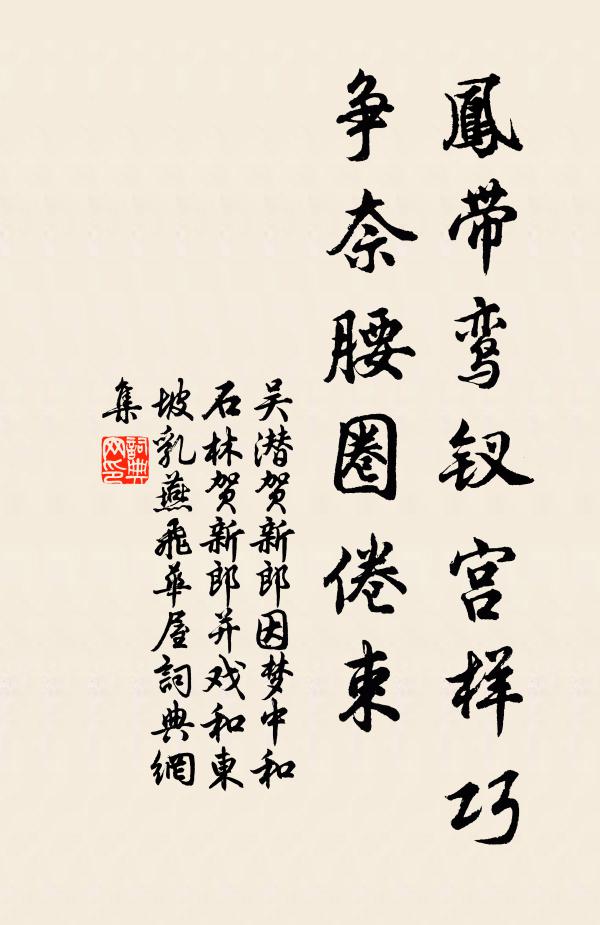 鳳带鸾钗宫样巧
争奈腰圈倦束
吴潜贺新郎因梦中和
石林贺新郎并戏和東
坡乳燕飛華屋詞典網
集
詞典
网印